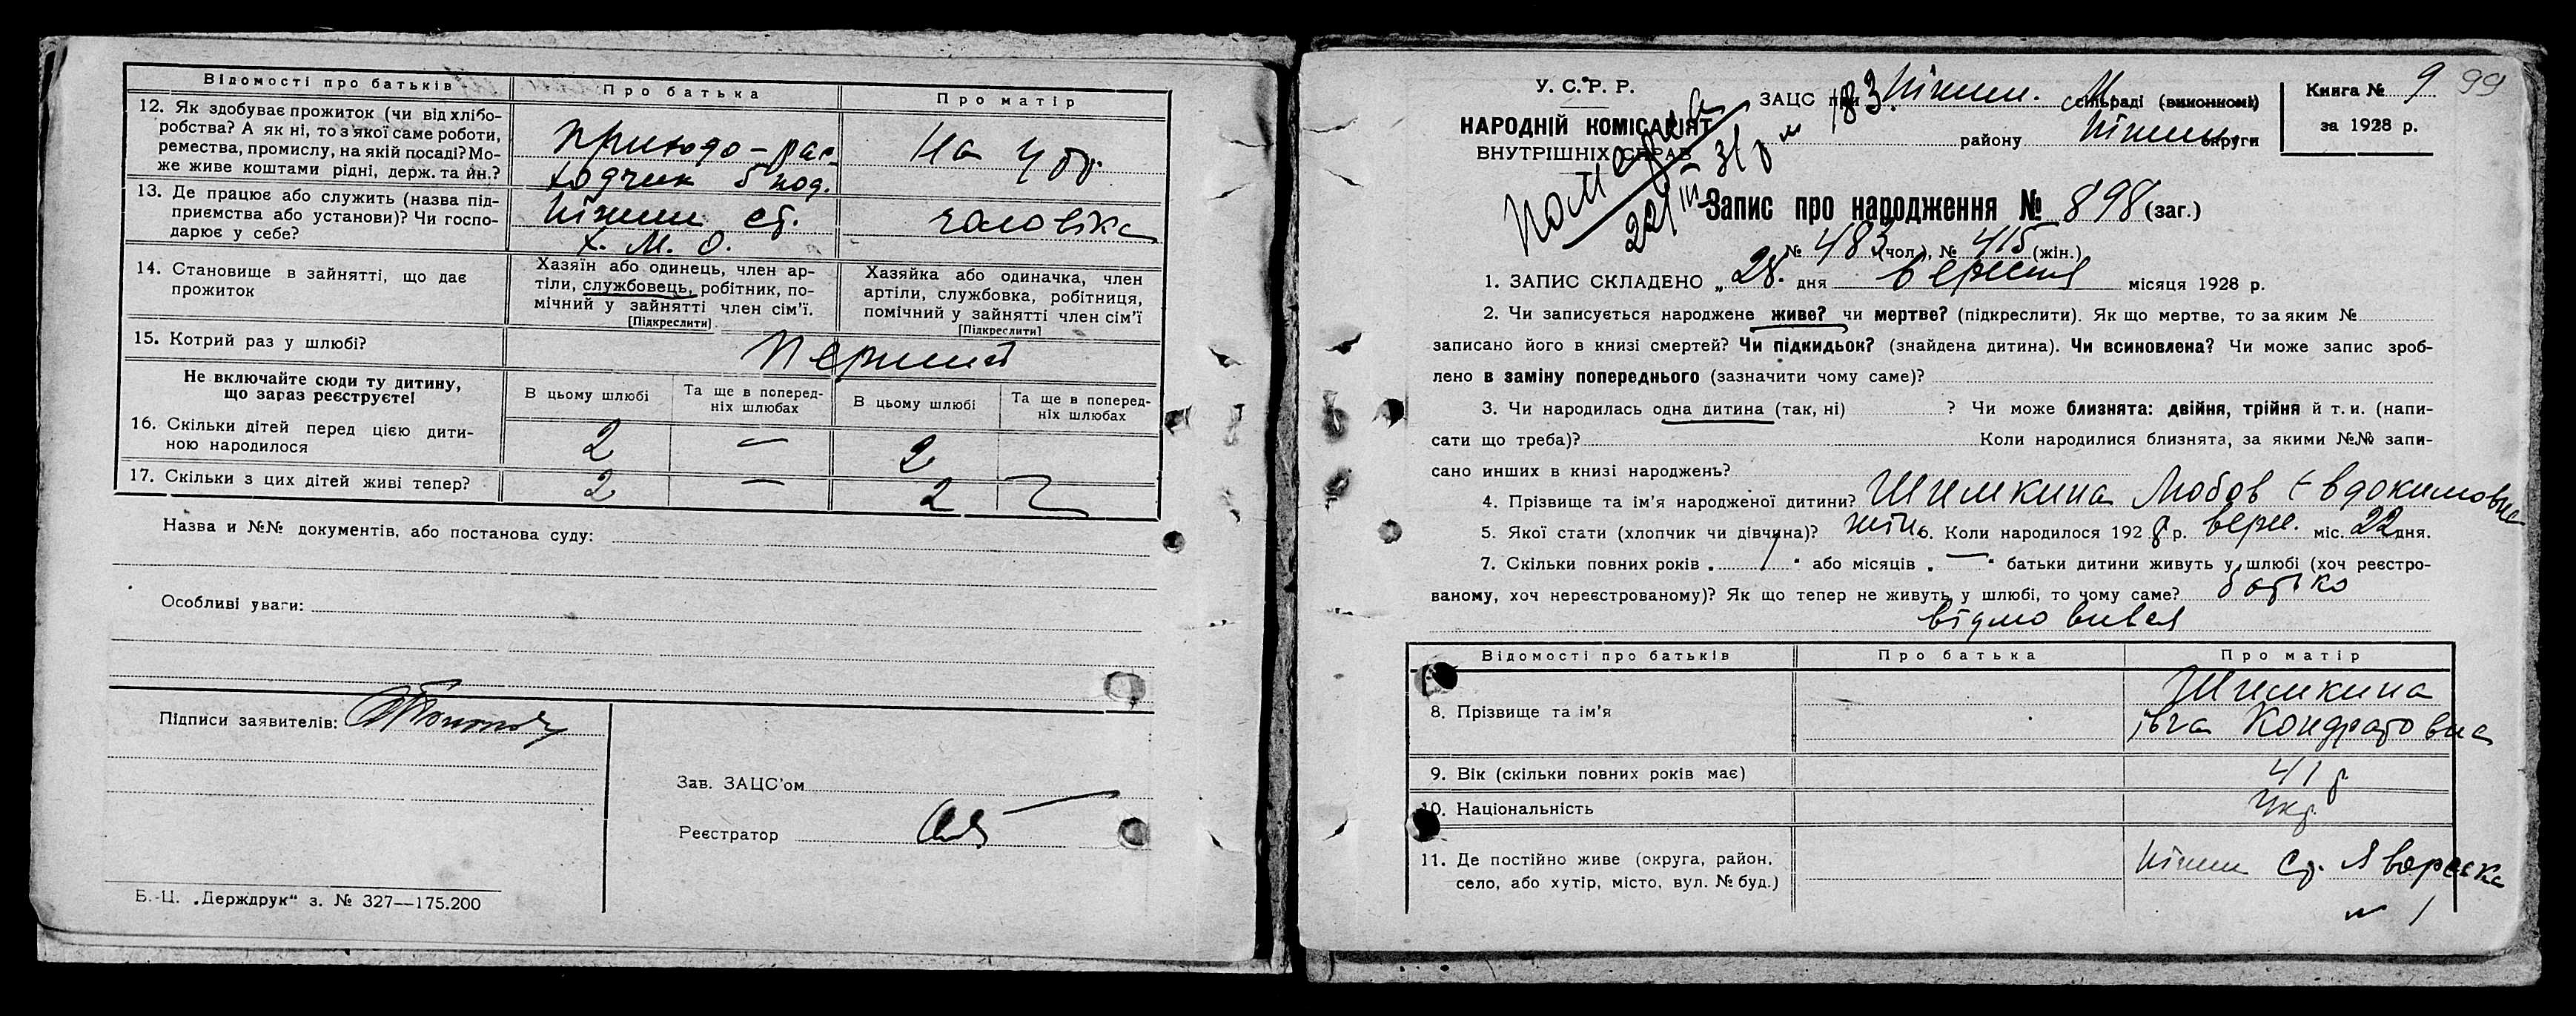 Відомості про батьків
Про батька
Про матір
12. Як здобуває прожиток (чи від хлібо-
робства? А як ні, то з якої саме роботи,
ремества, промислу, на якій посаді? Мо-
же живе коштами рідні, держ. та йн.?
Приходо-рас-
ходчик 5 под.
На утр.
13. Де працює або служить (назва під-
приємства або установи)? Чи госпо-
дарює у себе?
Ніжин ст.
чоловіка
14. Становище в зайнятті, що дає
прожиток
Хазяїн або одинець, член ар-
тіли, службовець, робітник, по-
мічний у зайнятті член сім'ї.
[Підкреслити]
Хазяйка або одиначка, член
артіли, службовка, робітниця,
помічний у зайнятті член сім'ї
[Підкреслити]
15. Котрий раз у шлюбі?
Перший
Не включайте сюди ту дитину,
що зараз реєструєте!
В цьому шлюбі
Та ще в поперед-
ніх шлюбах
В цьому шлюбі
Та ще в поперед-
ніх шлюбах
16. Скільки дітей перед цією дити-
ною народилося
2 — 2
17. Скільки з цих дітей живі тепер?
2 — 2
Назва и №№ документів, або постанова суду:
Особливі уваги:
Підписи заявителів:
Зав. ЗАЦС'ом
Реєстратор
Б.-Ц. „Держдрук" з. № 327—175.200
У. С. Р. Р.
НАРОДНІЙ КОМІСАРІЯТ
ВНУТРІШНІХ СПРАВ
ЗАЦС при Ніжин. М. сільраді (виконкомі)
району Ніжин. округи
Книга № 9
за 1928 р.
99
183
22/III 31 р
Запис про народження № 898 (заг.)
№ 483 (чол.), № 415 (жін.)
1. ЗАПИС СКЛАДЕНО „ 28. дня вересня місяця 1928 р.
2. Чи записується народжене живе? чи мертве? (підкреслити). Як що мертве, то за яким №
записано його в книзі смертей? Чи підкидьок? (знайдена дитина). Чи всиновлена? Чи може запис зроб-
лено в заміну попереднього (зазначити чому саме)?
3. Чи народилась одна дитина (так, ні) ? Чи може близнята: двійня, трійня й т. и. (напи-
сати що треба)? Коли народилися близнята, за якими №№ запи-
сано инших в книзі народжень?
4. Прізвище та ім'я народженої дитини? Шимкина Любов Євдокимовна
5. Якої стати (хлопчик чи дівчина)? жін. 6. Коли народилося 1928 р. верес. міс. 22 дня.
7. Скільки повних років „ 1 " або місяців „ — " батьки дитини живуть у шлюбі (хоч реєстро-
ваному, хоч нереєстрованому)? Як що тепер не живуть у шлюбі, то чому саме? батько
відмовився
Відомості про батьків
Про батька
Про матір
8. Прізвище та ім'я
Шимкина
Івга Кондратовна
9. Вік (скільки повних років має)
41 р
10. Національність
Укр.
11. Де постійно живе (округа, район,
село, або хутір, місто, вул. № буд.)
Ніжин Ст. Яворска
№ 1